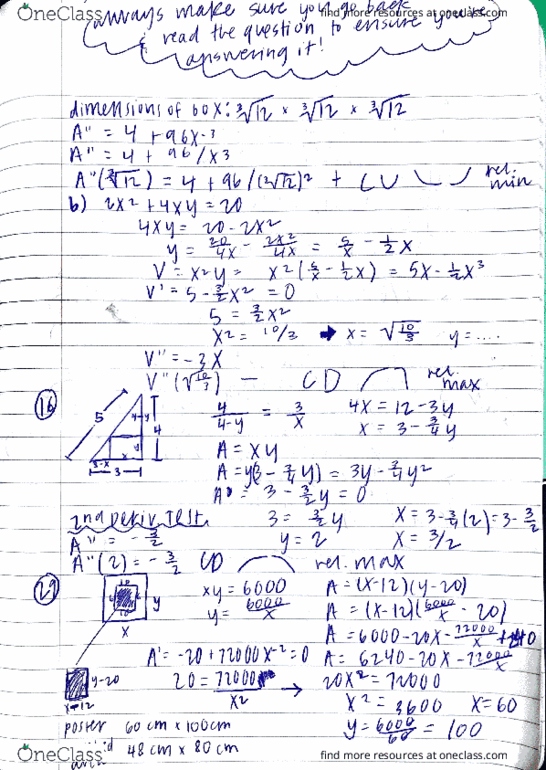 OneClass
find more resources at oneclass.com
always make sure you go back
read the question to ensure you're
answering it!
dimensions of box: ∛12 × ∛12 × ∛12
A'' = 4 + 96x-3
A'' = 4 + 96/x3
A''(∛12) = 4 + 96/(∛12)² + CU rel. min
b) 2x² + 4xy = 20
4xy = 20 - 2x²
y = 20/4x - 2x2/4x = 5/x - 1/2x
V = x²y = x²(5/x - 1/2x) = 5x - 1/2x³
V' = 5 - 3/2x² = 0
5 = 3/2x²
x² = 10/3 → x = √10/3 y = ....
V'' = -3x
V''(√10/3) — CD rel. max
16 5 4-y y 4 3-x x 3
4/4-y = 3/x 4x = 12 - 3y
x = 3 - 3/4y
A = xy
A = y(3 - 3/4y) = 3y - 3/4y²
A' = 3 - 3/2y = 0
2nd Deriv Test. 3 = 3/2y x = 3 - 3/4(2) = 3 - 3/2
A'' = -3/2 y = 2 x = 3/2
A''(2) = -3/2 CD rel. max
29 10 6 6 10 y x
xy = 6000 A = (x-12)(y-20)
y = 6000/x A = (x-12)(6000/x - 20)
A = 6000 - 20x - 72000/x + 240
A' = -20 + 72000x-2 = 0 A = 6240 - 20x - 72000/x
y-20 x-12 20 = 72000/x2 → 20x² = 72000
x² = 3600 x = 60
poster 60 cm x 100cm y = 6000/60 = 100
48 cm x 80 cm
OneClass
find more resources at oneclass.com